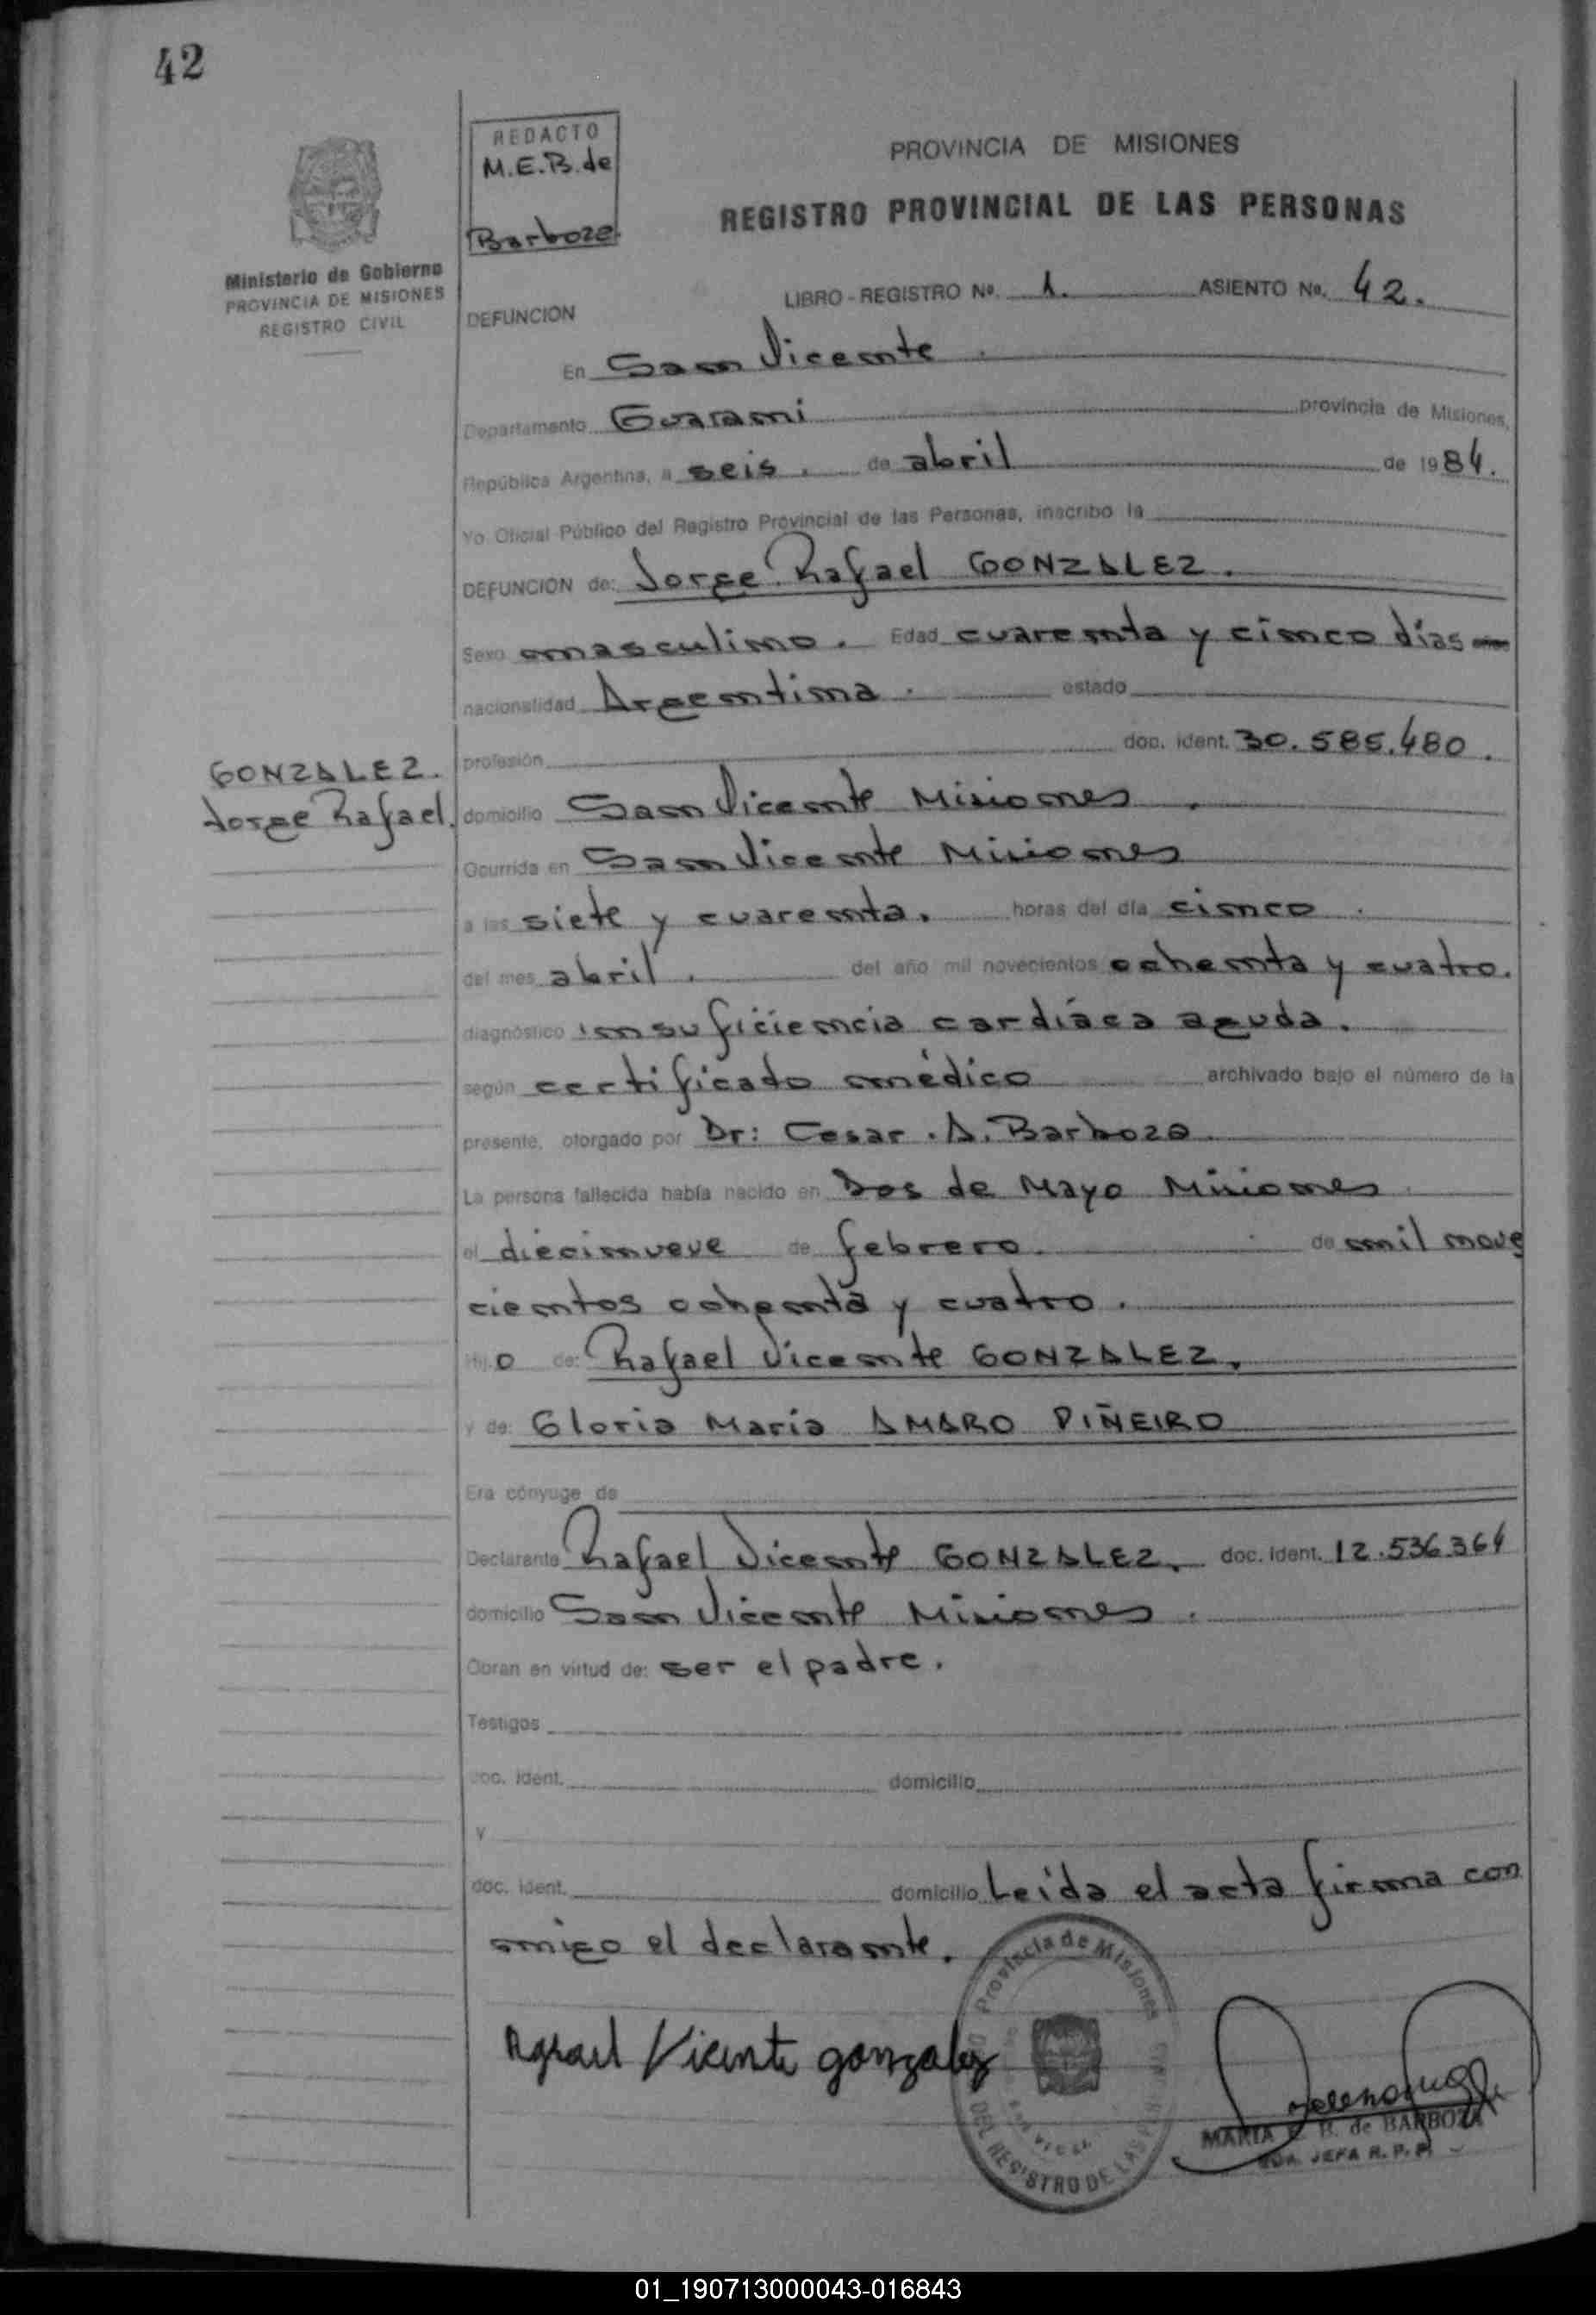 42
REDACTO
M.E.B. de
Barboza
Ministerio de Gobierno
PROVINCIA DE MISIONES
REGISTRO CIVIL
PROVINCIA DE MISIONES
REGISTRO PROVINCIAL DE LAS PERSONAS
LIBRO - REGISTRO Nº. 1. ASIENTO Nº. 42.
DEFUNCION
En San Vicente.
Departamento Guarani provincia de Misiones,
República Argentina, a seis. de abril de 1984.
Yo Oficial Público del Registro Provincial de las Personas, inscribo la
DEFUNCION de: Jorge Rafael GONZALEZ.
Sexo masculino. Edad cuarenta y cinco días
nacionalidad Argentina. estado
profesión doc. ident. 30.585.480.
GONZALEZ.
Jorge Rafael.
domicilio San Vicente Misiones.
Ocurrida en San Vicente Misiones
a las siete y cuarenta. horas del día cinco.
del mes abril. del año mil novecientos ochenta y cuatro.
diagnóstico insuficiencia cardíaca aguda.
según certificado médico archivado bajo el número de la
presente, otorgado por Dr: Cesar. A. Barboza
La persona fallecida había nacido en Dos de Mayo Misiones
el diecinueve de febrero. de mil nove
cientos ochenta y cuatro.
hijo de: Rafael Vicente GONZALEZ.
y de: Gloria María AMARO PIÑEIRO
Era cónyuge de
Declarante Rafael Vicente GONZALEZ. doc. ident. 12.536.364
domicilio San Vicente Misiones.
Obran en virtud de: ser el padre.
Testigos
doc. ident. domicilio
y
doc. ident. domicilio Leída el acta firma con
migo el declarante.
Rafael Vicente gonzalez
Provincia de Misiones
DEL REGISTRO DE LAS
MARIA E. B. de BARBOZA
JEFA R. P. P.
01_190713000043-016843